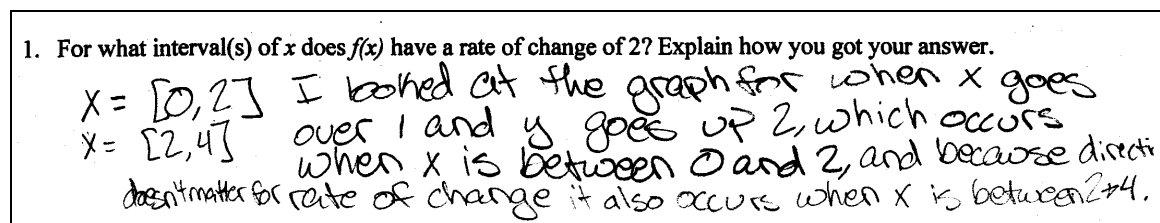 1. For what interval(s) of x does f(x) have a rate of change of 2? Explain how you got your answer.
x = [0,2] I looked at the graph for when x goes
x = [2,4] over 1 and y goes up 2, which occurs
when x is between 0 and 2, and because directi
doesn't matter for rate of change it also occurs when x is between 2+4.